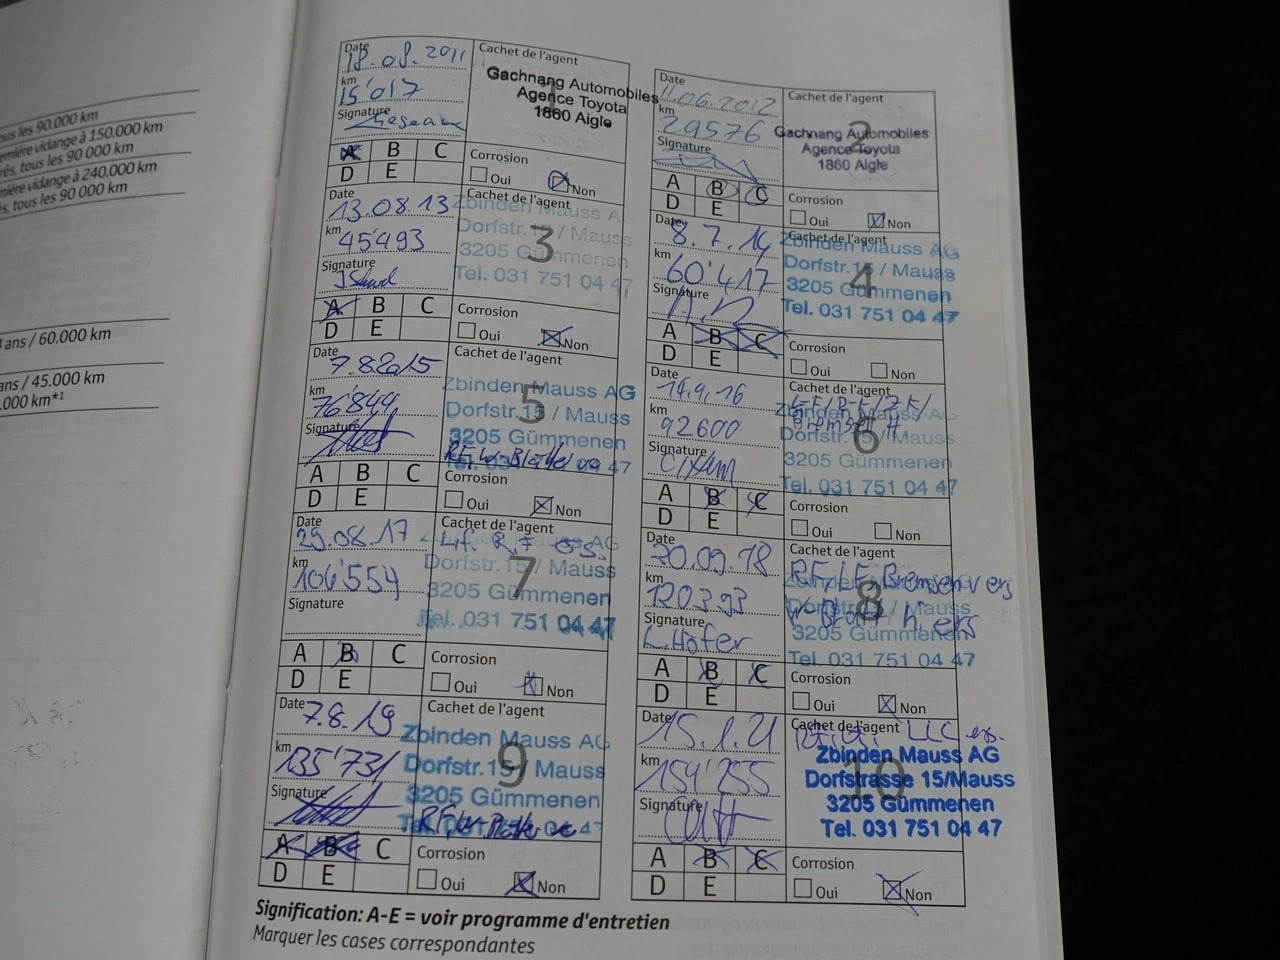 ous les 90.000 km
emière vidange à 150.000 km
rés, tous les 90 000 km
mière vidange à 240.000 km
s, tous les 90 000 km
ans / 60.000 km
ans / 45.000 km
.000 km*¹
Date 18.08.2011
km 15'017
Signature
Cachet de l'agent
1
Gachnang Automobiles
Agence Toyota
1860 Aigle
A B C
D E
Corrosion
Oui Non
Date 11.06.2012
km 29576
Signature
Cachet de l'agent
2
Gachnang Automobiles
Agence Toyota
1860 Aigle
A B C
D E
Corrosion
Oui Non
Date 13.08.13
km 45'493
Signature
Cachet de l'agent
3
Zbinden Mauss A
Dorfstr.15 / Mauss
3205 Gümmenen
Tel. 031 751 04 47
A B C
D E
Corrosion
Oui Non
Date 8.7.14
km 60'417
Signature
Cachet de l'agent
4
Zbinden Mauss AG
Dorfstr.15 / Mauss
3205 Gümmenen
Tel. 031 751 04 47
A B C
D E
Corrosion
Oui Non
Date 7.8.2015
km 76'844
Signature
Cachet de l'agent
5
Zbinden Mauss AG
Dorfstr.15 / Mauss
3205 Gümmenen
Tel. 031 751 04 47
A B C
D E
Corrosion
Oui Non
Date 14.9.-16
km 92600
Signature
Cachet de l'agent
6
Zbinden Mauss AG
Dorfstr.15 / Mauss
3205 Gümmenen
Tel. 031 751 04 47
A B C
D E
Corrosion
Oui Non
Date 29.08.17
km 106'554
Signature
Cachet de l'agent
7
AG
Dorfstr.15 / Mauss
3205 Gümmenen
Tel. 031 751 04 47
A B C
D E
Corrosion
Oui Non
Date 20.09.18
km 120393
Signature L.Hofer
Cachet de l'agent
8
RF/LF Bremsen vers
3205 Gümmenen
Tel. 031 751 04 47
A B C
D E
Corrosion
Oui Non
Date 7.8.19
km 135'731
Signature
Cachet de l'agent
9
Zbinden Mauss AG
Dorfstr.15 / Mauss
3205 Gümmenen
A B C
D E
Corrosion
Oui Non
Date 15.1.21
km 154'255
Signature
Cachet de l'agent
10
LLC ers.
Zbinden Mauss AG
Dorfstrasse 15/Mauss
3205 Gümmenen
Tel. 031 751 04 47
A B C
D E
Corrosion
Oui Non
Signification: A-E = voir programme d'entretien
Marquer les cases correspondantes